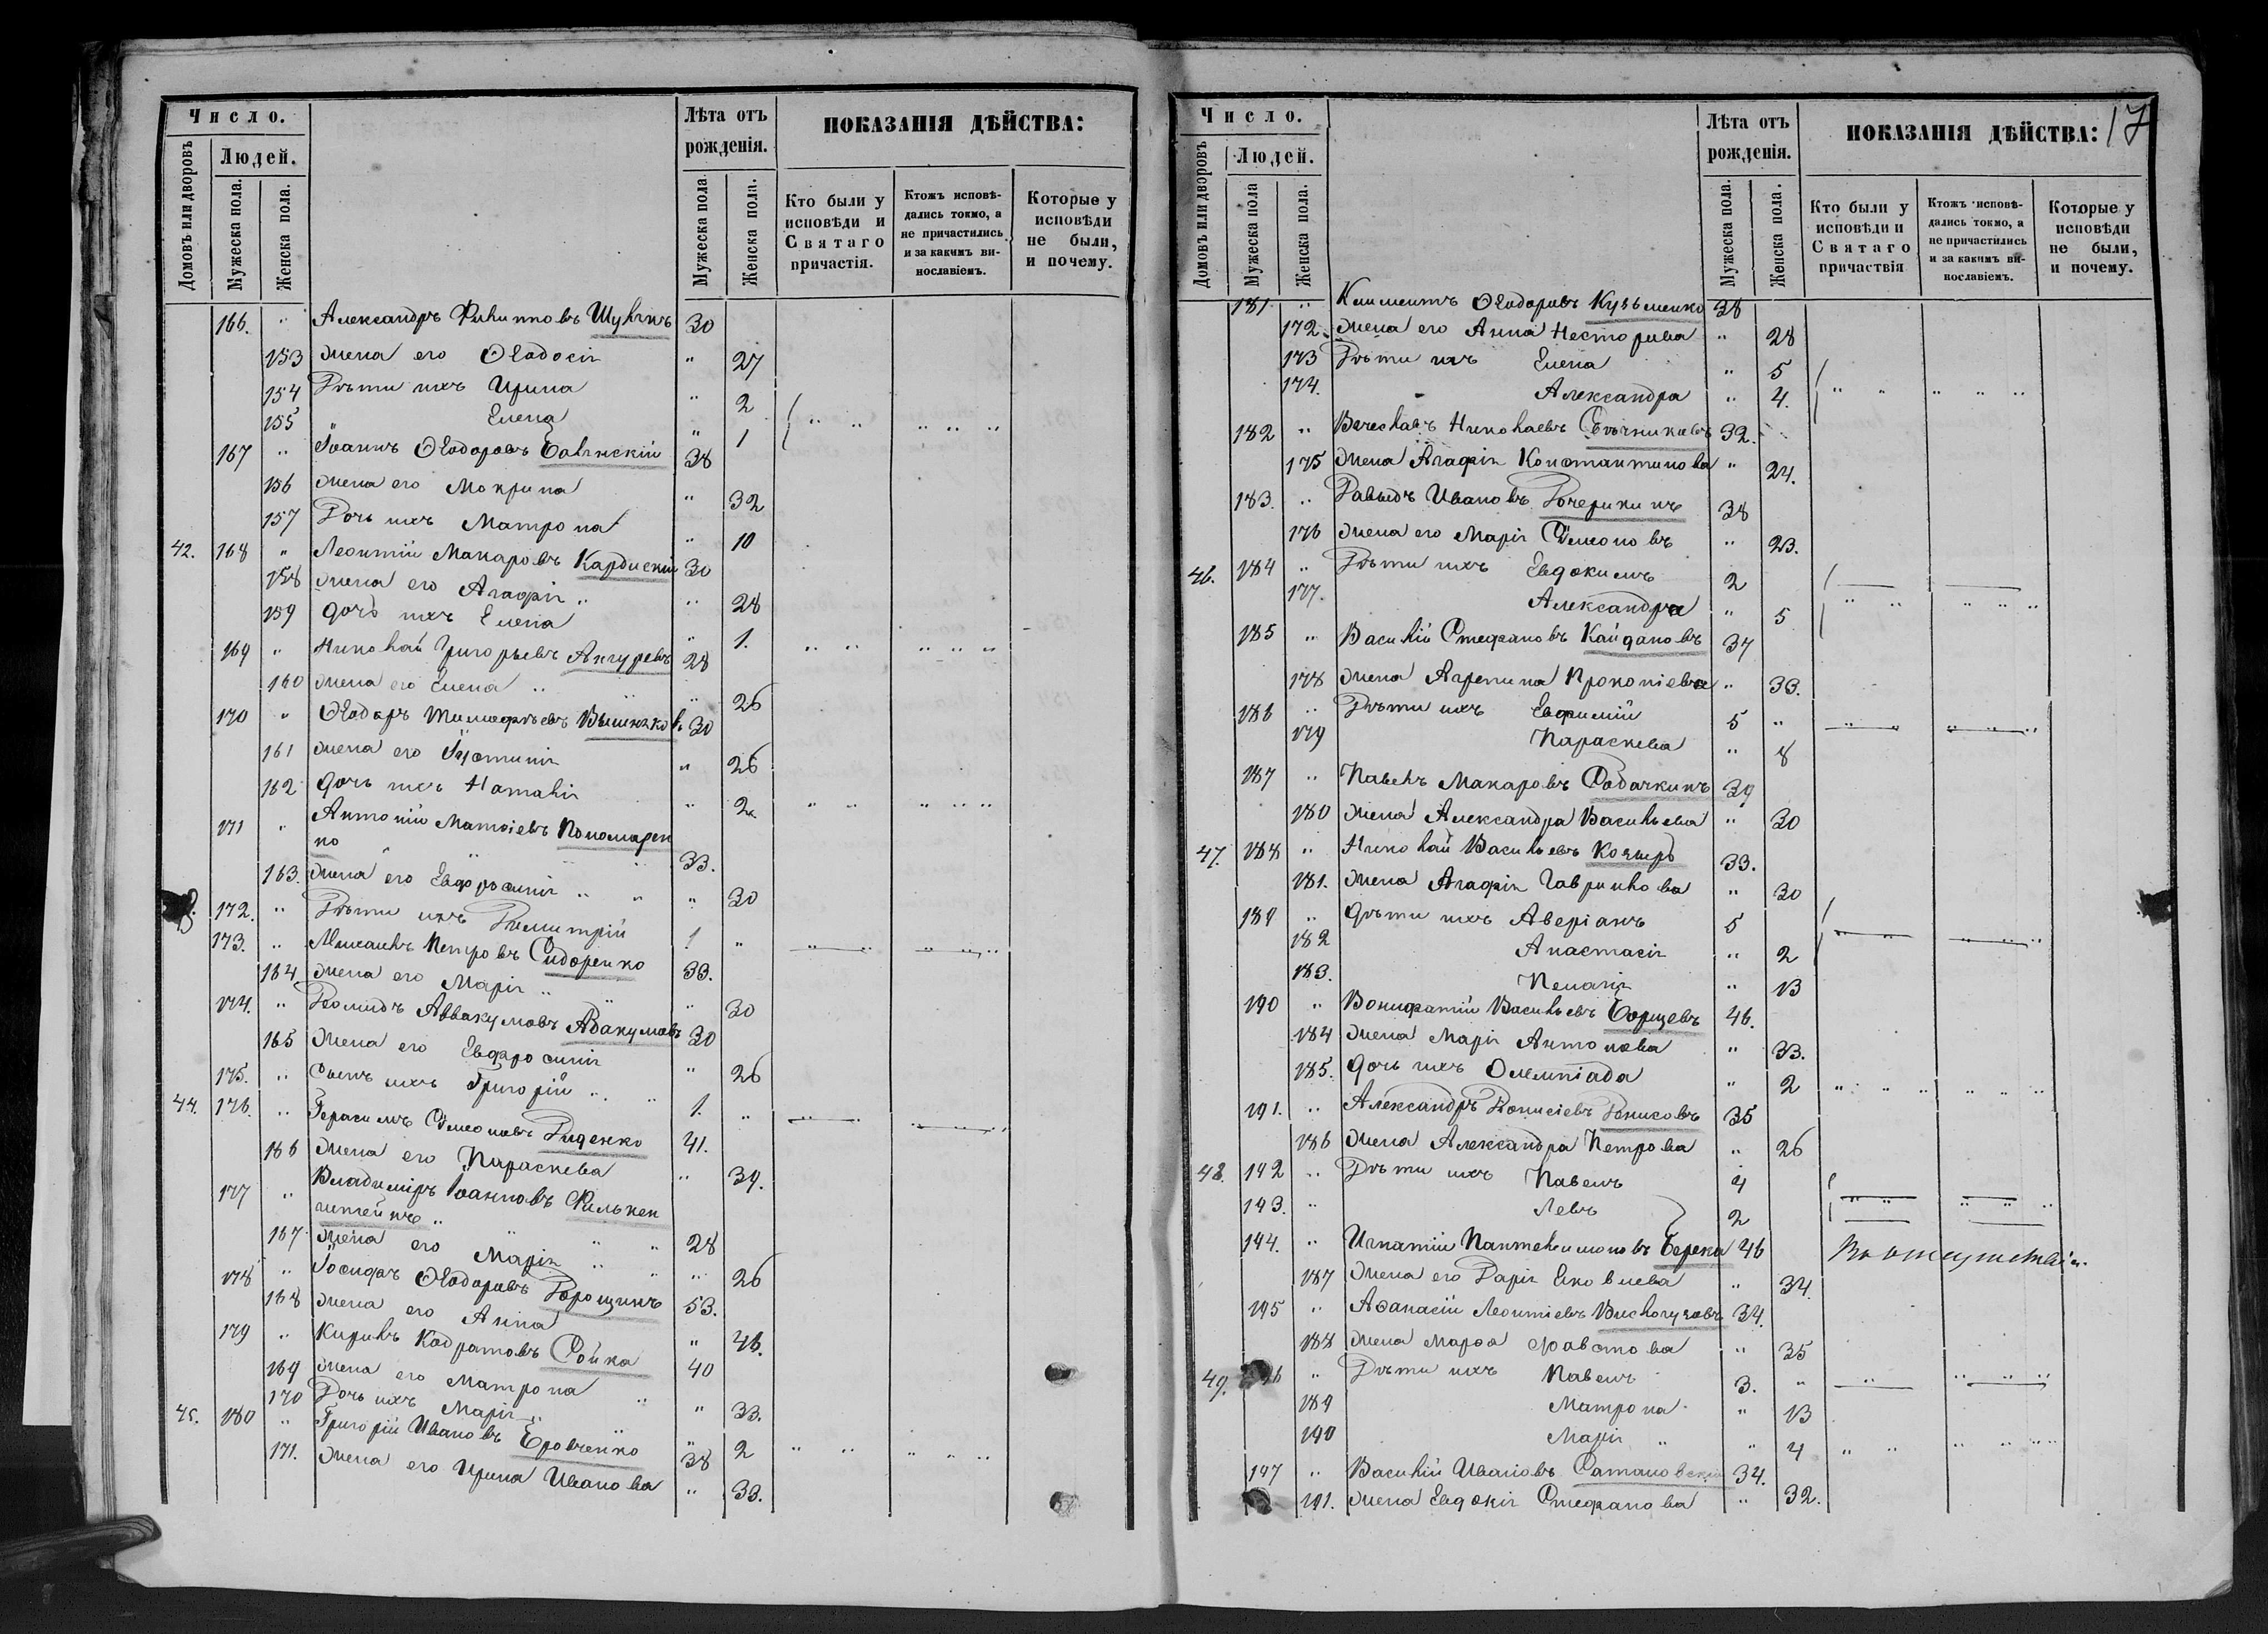 Число.
Людей.
Домовъ или дворовъ
Мужеска пола.
Женска пола.
Лѣта отъ рожденія.
Мужеска пола
Женска пола.
ПОКАЗАНІЯ ДѢЙСТВА:
Кто были у исповѣди и Святаго причастія.
Ктожъ исповѣдались токмо, а не причастились и за какимъ винословіемъ.
Которые у исповѣди не были, и почему.
166. " Александръ Филипповъ 30
153 жена его Ѳеодосія " 27
154 Дѣти ихъ Ирина " 2
155 Елена " 1
167 " Іоаннъ Ѳеодоровъ 38
156 жена его Мокрина " 32
157 Дочь ихъ Матрона " 10
42. 168 " Леонтій Макаровъ 30
158 жена его Агафія " 28
159 дочь ихъ Елена " 1.
169 " Николай Григорьевъ 28
160 жена его Елена " 26
170 " Ѳеодоръ Тимофѣевъ Вишняковъ 30
161 жена его Іустинія " 26
162 дочь ихъ Наталія " 2
171 " Антоній Матѳіевъ Пономарен
ко 33.
163. жена его Евфросинія " 30
172. " Дѣти ихъ Димитрій 1 "
173. " Михаилъ Петровъ Сидоренко 33.
164 жена его Марія " 30
174. " Аввакумовъ Абакумовъ 30
165 жена его Евфросинія " 26
175. " сынъ ихъ Григорій 1. "
44. 176. " Герасимъ Симоновъ Диденко 41.
166 жена его Параскева " 39.
177 " Владиміръ Іоанновъ Фалькен
штейнъ 28
167 жена его Марія " 26
178 " Іосифъ Ѳеодоровъ 53.
168 жена его Анна " 46.
179 " Кирилъ Кодратовъ Сойка 40
169 жена его Матрона " 33.
170 Дочь ихъ Марія " 2
45. 180 " Григорій Ивановъ Еровченко 38
171. жена его Ирина Иванова " 33.
17
Число.
Людей.
Домовъ или дворовъ
Мужеска пола
Женска пола.
Лѣта отъ рожденія.
Мужеска пола.
Женска пола.
ПОКАЗАНІЯ ДѢЙСТВА:
Кто были у исповѣди и Святаго причаствія
Ктожъ исповѣдались токмо, а не причастились и за какимъ винословіемъ.
Которые у исповѣди не были, и почему.
181 " Климентъ Ѳеодоровъ Кузьменко 38
172. жена его Анна Несторова " 28
173 Дѣти ихъ Елена " 5
174. Александра " 4.
182 " Вячеславъ Николаевъ 32.
175 жена Агафія Константинова " 24.
183. " Давыдъ Ивановъ 38
176 жена его Марія Симоновъ " 23.
46. 184 " Дѣти ихъ Евдокимъ 2
177. Александра " 5
185 " Василій Стефановъ Кайдановъ 37
178 жена Агрепина Прокопіева " 33.
186 " Дѣти ихъ Евфимій 5 "
179 Параскева " 8
187 " Павелъ Макаровъ Собачкинъ 39
180 жена Александра Васильева " 30
47. 188 " Николай Васильевъ Козырь 33.
181. жена Агафія Гаврилова " 30
189 " дѣти ихъ Аверіанъ 5
182 Анастасія " 2
183. Пелагія " 13
190 " Вонифатій Васильевъ Борщевъ 46.
184 жена Марія Антонова " 33.
185. дочь ихъ Олемпіада " 2
191. " Александръ Діонисіевъ Денисовъ 35
186 жена Александра Петрова " 26
48. 192 " Дѣти ихъ Павелъ 4
193. " Левъ 2
194. " Игнатій Пантелеимоновъ Берека 46 Въ отсутствіи
187 жена его Дарія Яковлева " 34.
195 " Аѳанасій Леонтіевъ 34.
188 жена Марѳа " 35
49. " Дѣти ихъ Павелъ 3. "
189 Матрона " 13
190 Марія " 4
197 " Василій Ивановъ Сатановскій 34.
191. жена Евдокія Стефанова " 32.